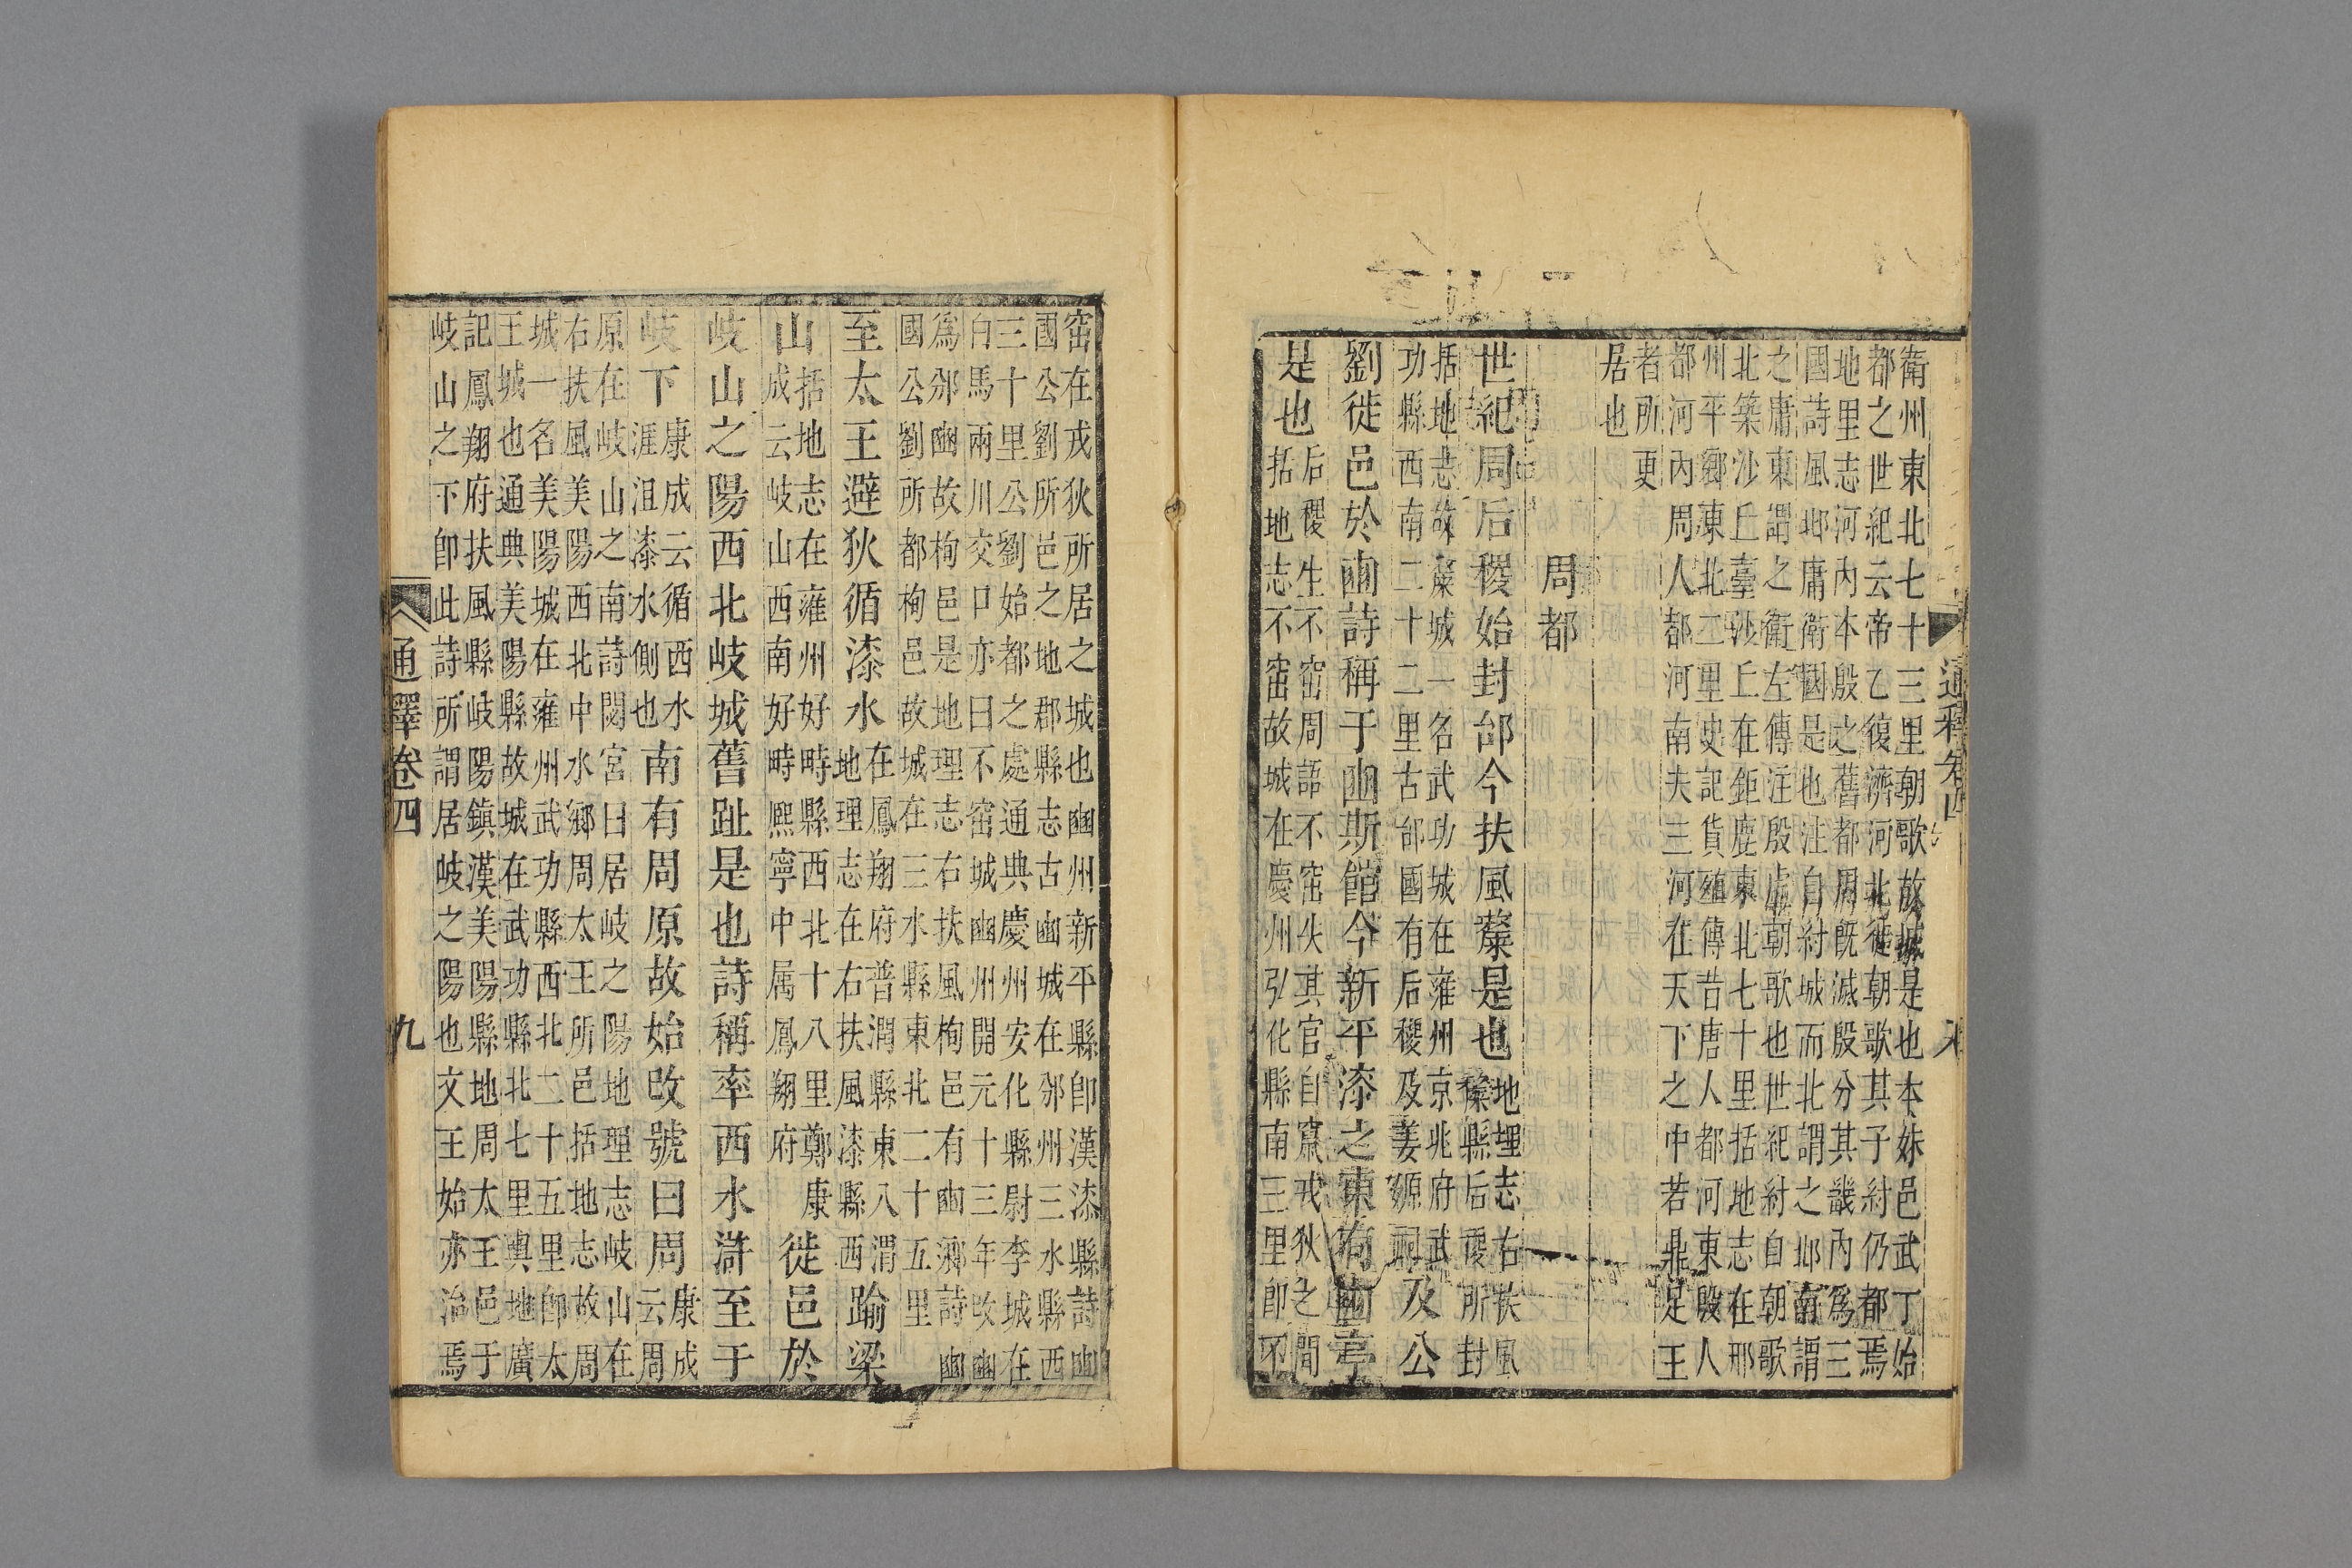 衛州東北七十三里朝歌故城是也本妹邑武丁始
都之世紀云帝乙復濟河北徙朝歌其子紂仍都焉
地里志河内本殷之舊都周既滅殷分其畿内爲三
國詩風邶庸衛國是也注自紂城而北謂之邶南謂
之庸東謂之衛左傳注殷虚朝歌也世紀紂自朝歌
北築沙丘臺沙丘在鉅鹿東北七十里括地志在邢
州平鄉東北二十里史記貨殖傳昔唐人都河東殷人
都河内周人都河南夫三河在天下之中若鼎足王
者所更
居也
周都
世紀周后稷始封邰今扶風斄是也
地理志右扶風
斄縣后稷所封
括地志故斄城一名武功城在雍州京兆府武
功縣西南二十二里古邰國有后稷及姜嫄祠
及公
劉徙邑於豳詩稱于豳斯館今新平漆之東有豳亭
是也
后稷生不窋周語不窋失其官自竄戎狄之間
括地志不窋故城在慶州弘化縣南三里卽不
窋在戎狄所居之城也豳州新平縣卽漢漆縣詩豳
國公劉所邑之地郡縣志古豳城在邠州三水縣西
三十里公劉始都之處通典慶州安化縣尉李城在
白馬兩川交口亦曰不窋城豳州開元十三年改豳
爲邠豳故栒邑是地理志右扶風栒邑有豳鄉詩豳
國公劉所都栒邑故城在三水縣東北二十五里
至太王避狄循漆水
在鳳翔府普潤縣東八渭
地理志在右扶風漆縣西
踰梁
山
括地志在雍州好畤縣西北十八里鄭康
成云岐山西南好畤熈寧中属鳳翔府
徙邑於
岐山之陽西北岐城舊趾是也詩稱率西水滸至于
岐下
康成云循西水
涯沮漆水側也
南有周原故始改號曰周
康成
云周
原在岐山之南詩閟宮曰居岐之陽地理志岐山在
右扶風美陽西北中水鄉周太王所邑括地志故周
城一名美陽城在雍州武功縣西北二十五里卽太
王城也通典美陽縣故城在武功縣北七里輿地廣
記鳳翔府扶風縣岐陽鎮漢美陽縣地周太王邑于
岐山之下卽此詩所謂居岐之陽也文王始亦治焉
通釋卷四
九